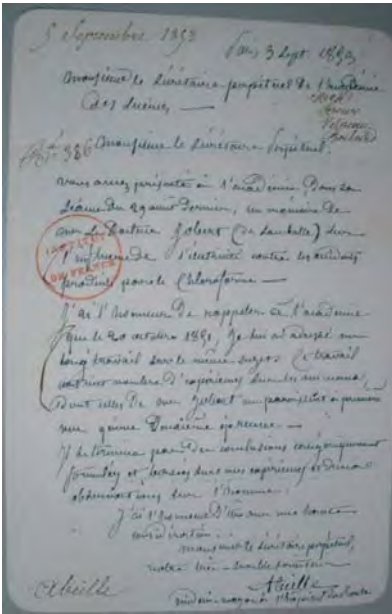 5 Septembre 1853
Paris 3 Sept. 1853
Monsieur le Secrétaire perpétuel de l'académie
des Sciences —
Monsieur le Secrétaire Perpétuel.
vous avez présenté à l'académie, Dans sa
Séance du 29 aout Dernier, un mémoire de
Mr Le Docteur Jobert (de Lamballe) sur
l'influence de l'électricité contre les accidents
produits par le Chloroforme —
INSTITUT
DE FRANCE
J'ai l'honneur De rappeler à l'académie
que le 20 octobre 1851, je lui ai adressé un
long travail sur le même sujet. Ce travail
contient nombre D'expériences sur les animaux,
Dont celles de Mr Jobert ne paraissent à première
vue qu'une Deuxième épreuve —
Il se termine par des conclusions
formulées et basées sur mes expériences et
observations sur l'homme.
J'ai l'honneur D'être avec une haute
considération
monsieur le Secrétaire perpétuel,
votre très humble serviteur
Abeille
Abeille
médecin